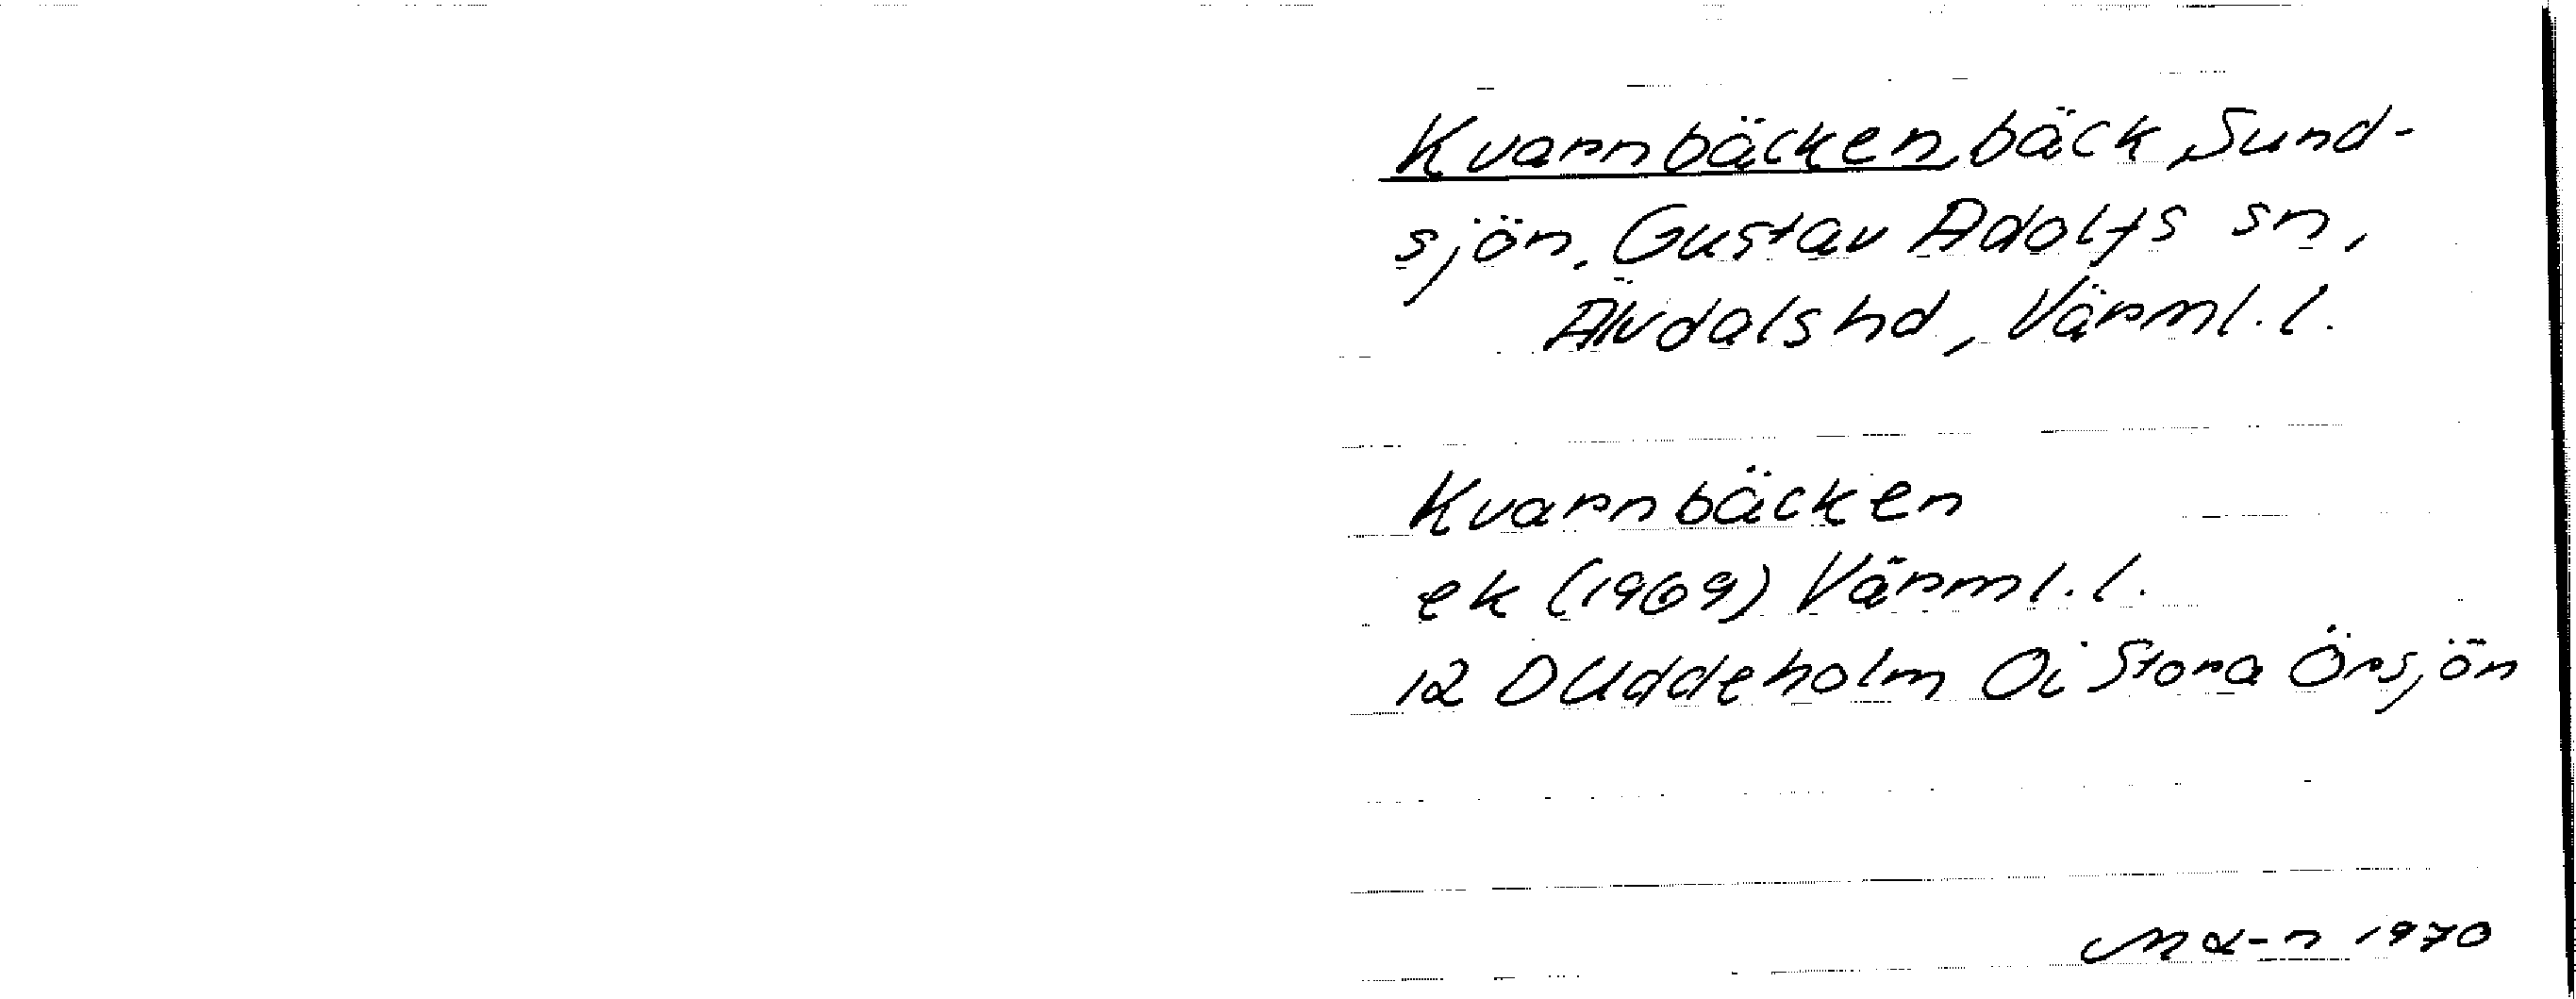 Kvarnbäcken, bäck, Sund-
sjön, Gustav Adolfs sn,
Älvdals hd, Värml. l.
Kvarnbäcken
ek (1969) Värml. l.
12 D Uddeholm Oi Stora Örsjön
1970